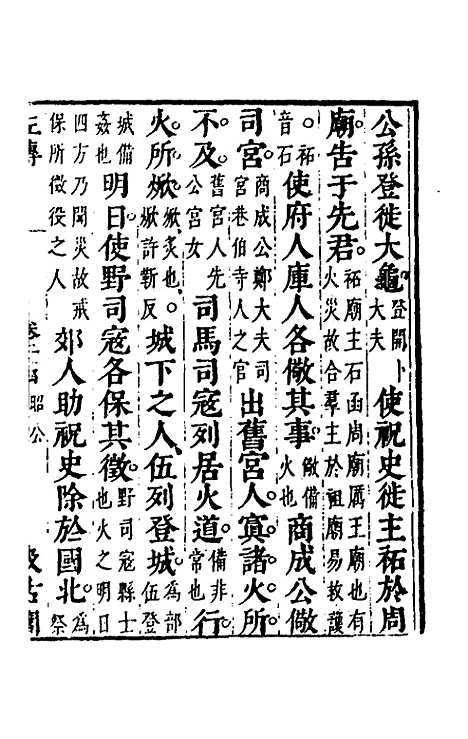 公孫登徙大龜登開卜大夫使祝史徙主祏於周
廟告于先君祏廟主石函周廟厲王廟也有火災故合羣主於祖廟易救護
祏音石使府人庫人各儆其事儆備火也商成公儆
司宮商成公鄭大夫司宮巷伯寺人之官出舊宮人寘諸火所
不及舊宮人先公宮女司馬司寇列居火道備非常也行
火所焮焮炙也焮許靳反城下之人伍列登城爲部伍登
城備姦也明日使野司寇各保其徵野司寇縣士也火之明日
四方乃聞災故戒保所徵役之人郊人助祝史除於國北爲祭
左傳 卷二 昭公 汲古閣